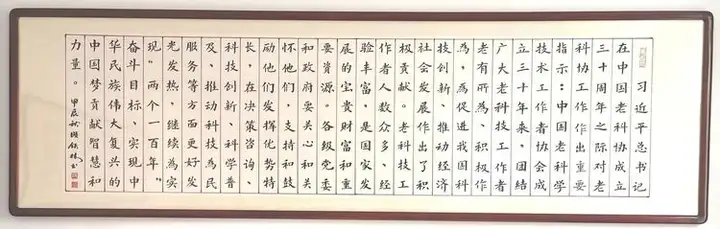 习近平总书记
在中国老科协成立
三十周年之际对老
科协工作作出重要
指示：中国老科学
技术工作者协会成
立三十年来，团结
广大老科技工作者
老有所為、积极作
為，為促进我国科
技创新、推动经济
社会发展作出了积
极贡献。老科技工
作者人数众多、经
验丰富，是国家发
展的宝贵财富和重
要资源。各级党委
和政府要关心和关
怀他们，支持和鼓
励他们发挥优势特
长，在决策咨询、
科技创新、科学普
及、推动科技為民
服务等方面更好发
光发热，继续為实
现“两个一百年”
奋斗目标、实现中
华民族伟大复兴的
中国梦贡献智慧和
力量。 甲辰秋